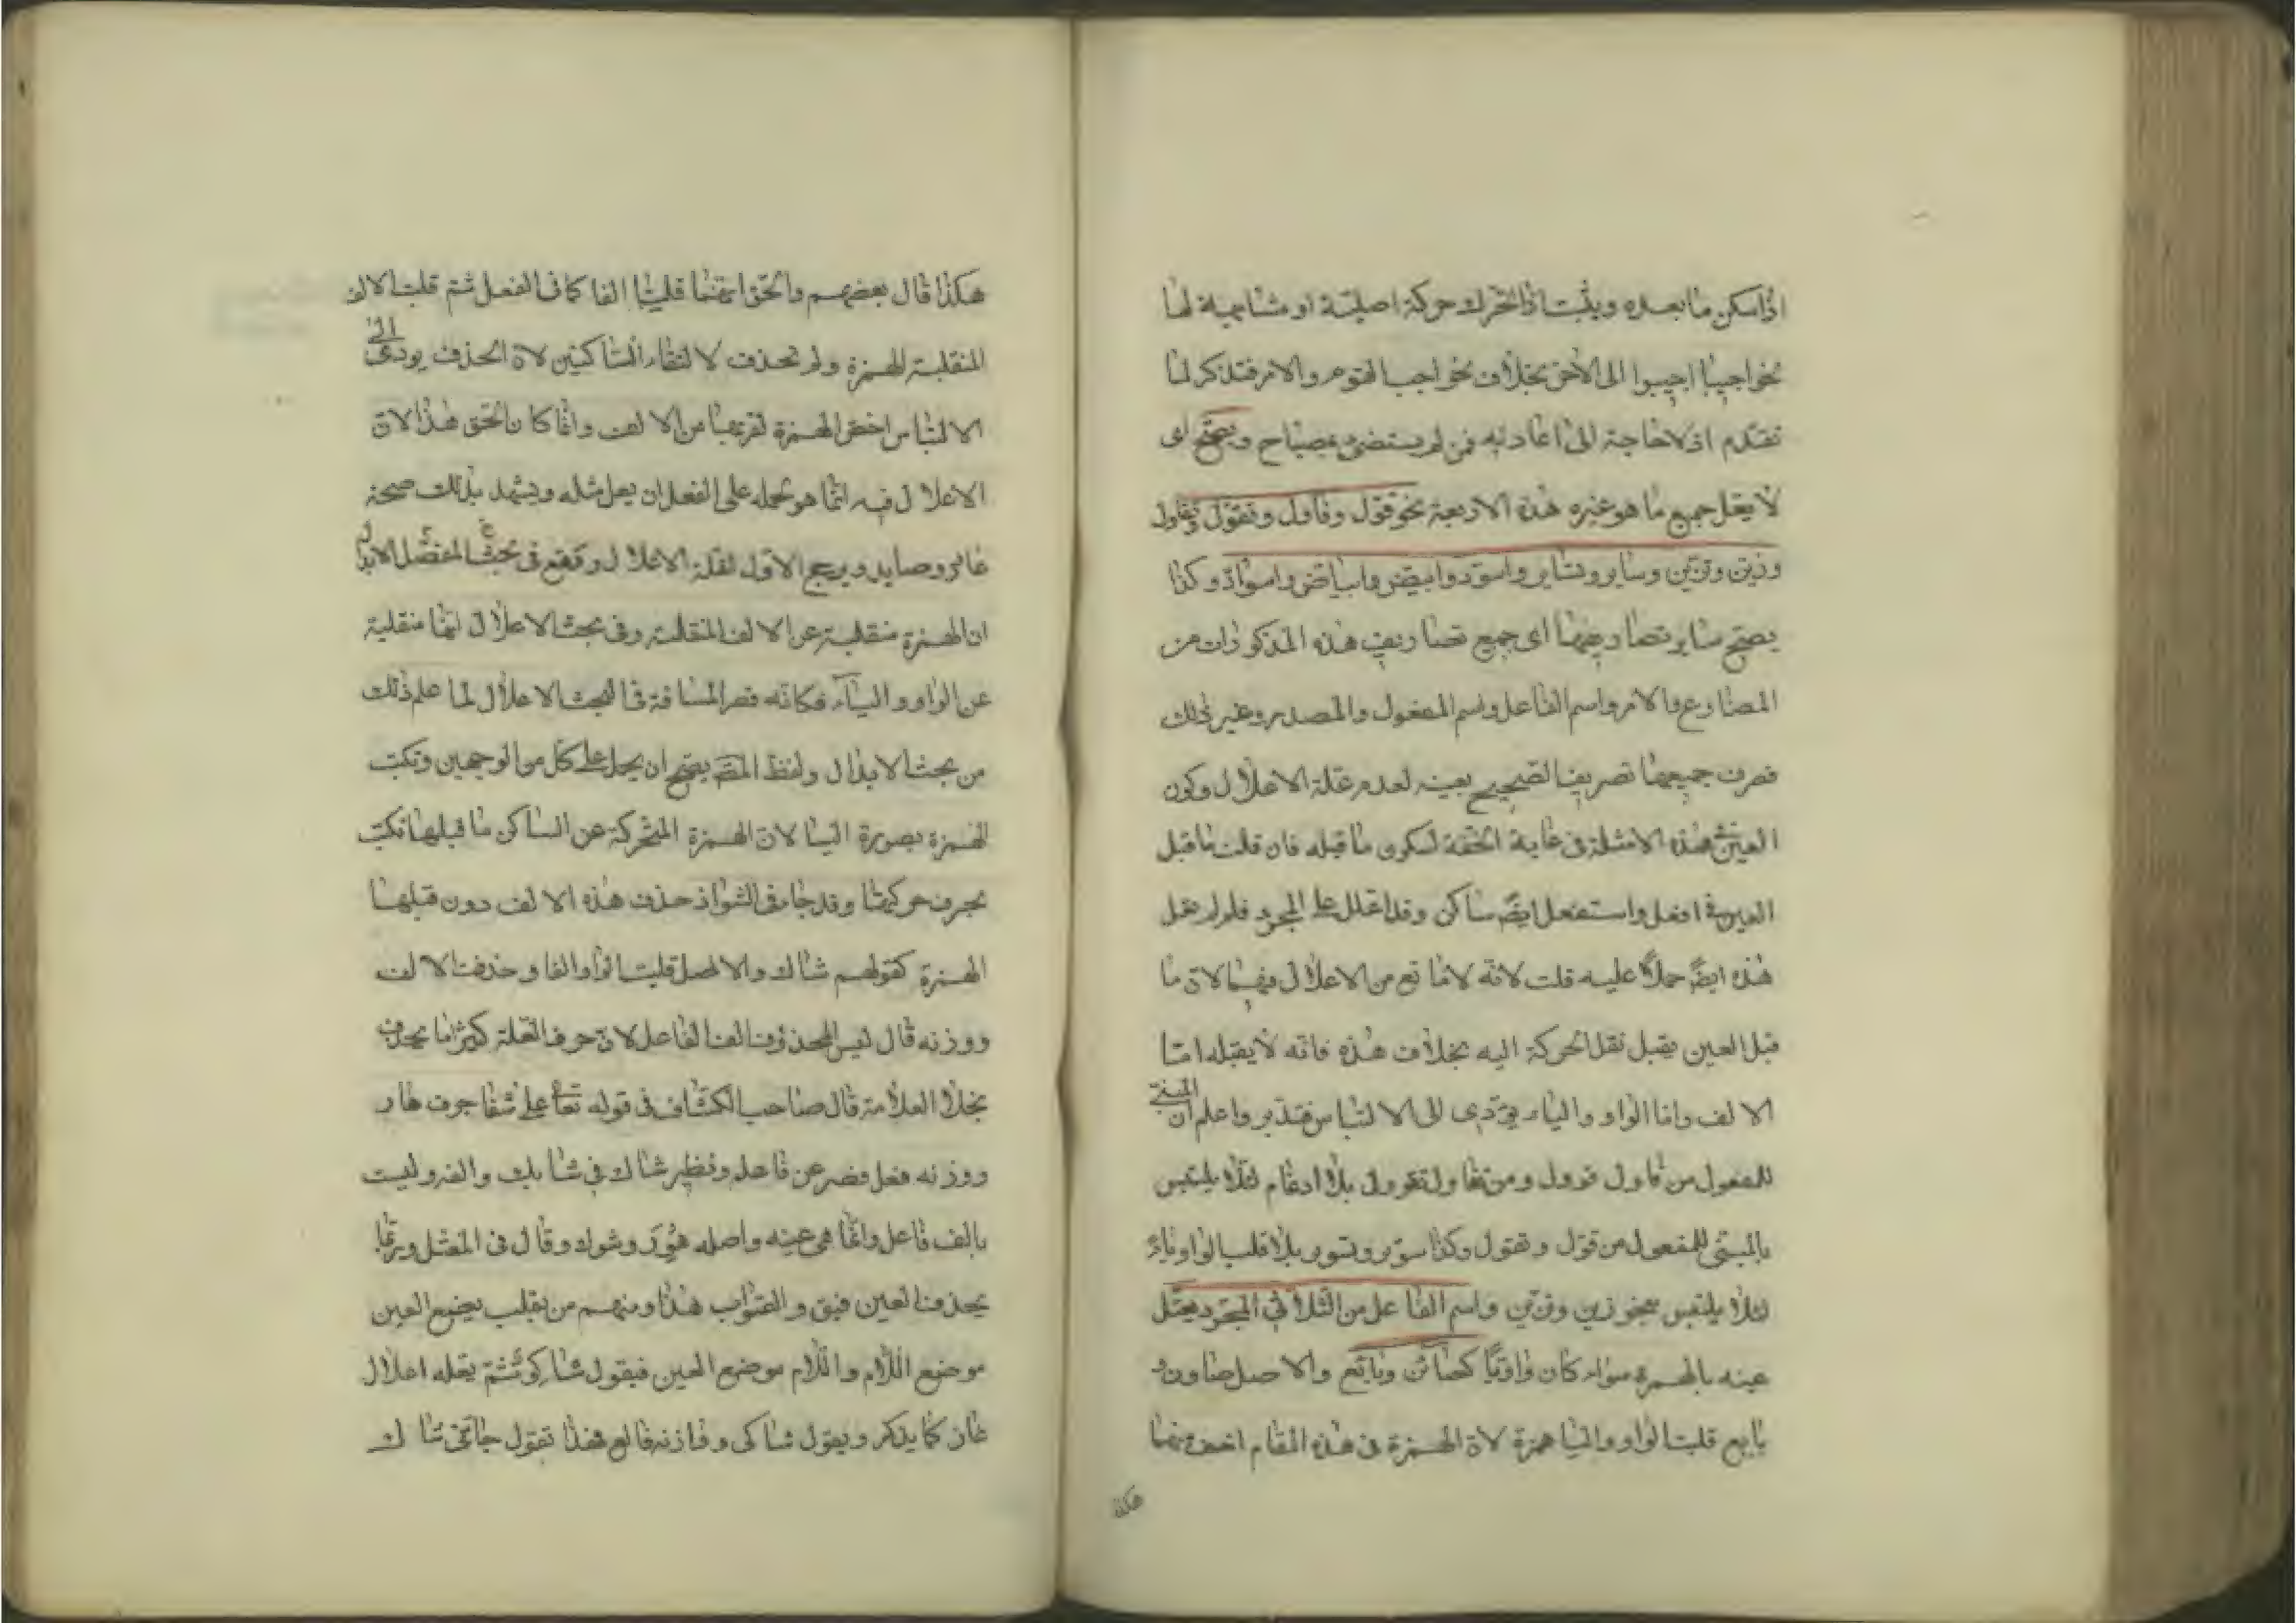 اذا سكن ما بعده ويثبت اذا تحرك حركة اصلية او مشابهة لها
نحو اجيبا اجيبوا الى الآخر بخلاف نحو اجيب القوم والامر فتذكر لما
تقدم اذ لا حاجة الى اعادته فمن لم يستضئ بمصباح ويصح اى
لا يعل جميع ما هو غيره هذه الاربعة نحو قوّل وقاول وتقوّل وتقاول
وزيّن وتزيّن وساير وتساير واسودّ وابيضّ وابياضّ واسوادّ وكذا
يصح ساير تصاريفها اى جميع تصاريف هذه المذكورات من
المضارع والامر واسم الفاعل واسم المفعول والمصدر وغير ذلك
فصرف جميعها تصريف الصحيح بعينه لعدم علة الاعلال وكون
العين فى هذه الامثلة فى غاية الخفة لسكون ما قبله فان قلت ما قبل
العين فى افعل واستفعل ايضً ساكن وقد اعلل على المجرد فلم لم يحمل
هذه ايضً حملاً عليه قلت لانه لا مانع من الاعلال فيهما لان ما
قبل العين يقبل نقل الحركة اليه بخلاف هذه فانه لا يقبله اما
الالف واما الواو والياء يؤدى الى الالتباس فتدبر واعلم ان المبنى
للمفعول من قاول قوول ومن تقاول تقوول بلا ادغام لئلا يلتبس
بالمبنى للمفعول من قوّل وتقوّل وكذا سوير وتسوير بلا قلب الواو ياءً
لئلا يلتبس بنحو زين وتزين واسم الفاعل من الثلاثى المجرد يعتل
عينه بالهمزة سواء كان واويًا كصائن وبائع والاصل صاون و
بايع قلبت الواو والياء همزة لان الهمزة فى هذه المقام اخف منهما
هكذا
هكذا قال بعضهم والحق انهما قلبتا الفا كما فى الفعل ثم قلبت الالف
المنقلبة الهمزة ولم تحذف لالتقاء الساكنين لان الحذف يودى الى
الالتباس اختص الهمزة لقربها من الالف وانما كان الحق هذا لان
الاعلال فيه انما هو لحمله على الفعل ان يعل مثله ويشهد بذلك صحة
عاور وصايد ويرجح الاول لقلة الاعلال وقع فى بحث المفصّل الابدال
ان الهمزة منقلبة عن الالف المنقلبة وفى بحث الاعلال انها منقلبة
عن الواو والياء فكانه قصر المسافة فى البحث الاعلال لما علم ذلك
من بحث الابدال ولفظ المصـ يصح ان يحمل على كل من الوجهين وتكتب
الهمزة بصورة اليا لان الهمزة المتحركة عن الساكن ما قبلها تكتب
بحرف حركتها وقد جاء فى الشواذ حذف هذه الالف دون قبلها
الهمزة كقولهم شاك والاصل قلبت الواو الفا وحذفت الالف
ووزنه قال ليس المحذوف الف الفاعل لان حرف العلة كثيرًا ما يحذف
بخلا العلامة قال صاحب الكشاف فى قوله تعا على شفا جرف هار
ووزنه فعل قصر عن فاعل ونظير شاك فى شايك والفه وليست
بالف فاعل وانما هى عينه واصله هَوِرٌ وشوك وقال فى المفصل وربما
يحذف العين فيق والصواب هذا ومنهم من يقلب يضع العين
موضع اللام واللام موضع العين فيقول شاكوٌ ثم يعله اعلال
غاز كما يذكر ويقول شاكى و وازنه فالع فهذا تقول جائنى شاك